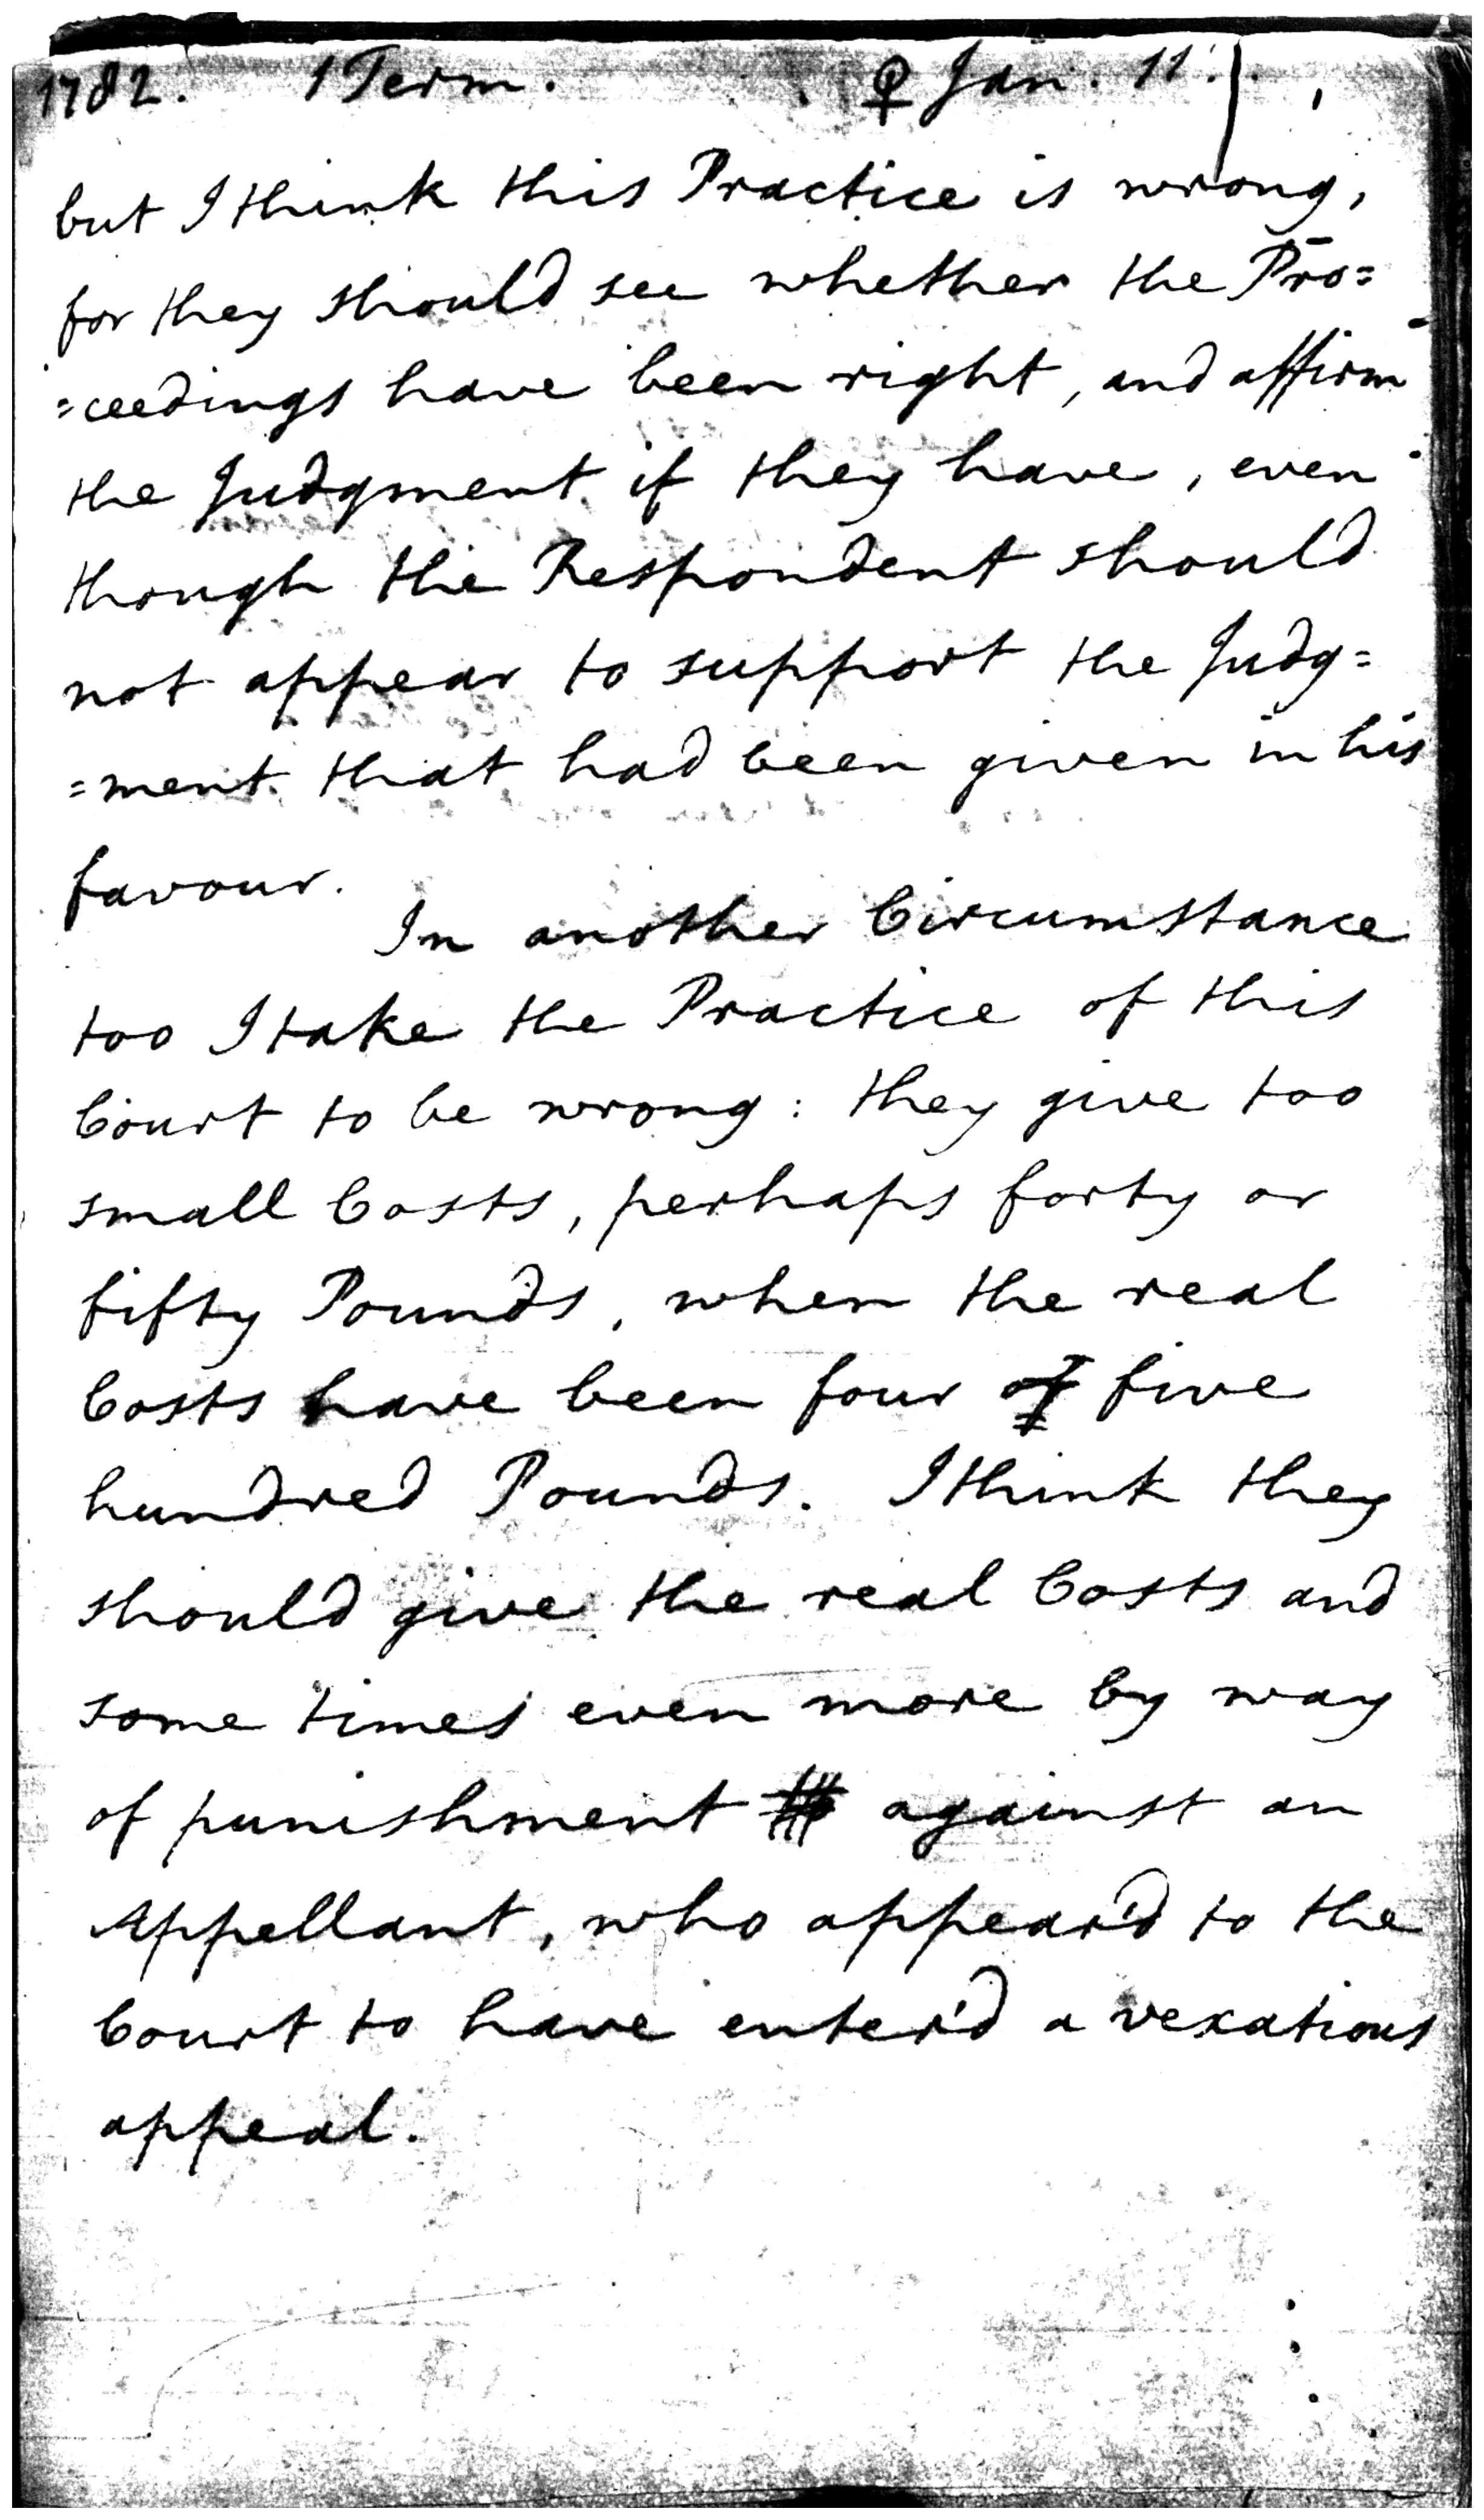 1782. 1 Term. ♀ Jan. 11.
but I think this Practice is wrong,
for they should see whether the Pro=
=ceedings have been right, and affirm
the Judgment if they have, even
though the Respondent should
not appear to support the Judg=
=ment that had been given in his
favour.
In another Circumstance
too I take the Practice of this
Court to be wrong: they give too
small Costs, perhaps forty or
fifty Pounds, when the real
Costs have been four or five
hundred Pounds. I think they
should give the real Costs and
some times even more by way
of punishment against an
Appellant, who appear'd to the
Court to have enter'd a vexatious
appeal.